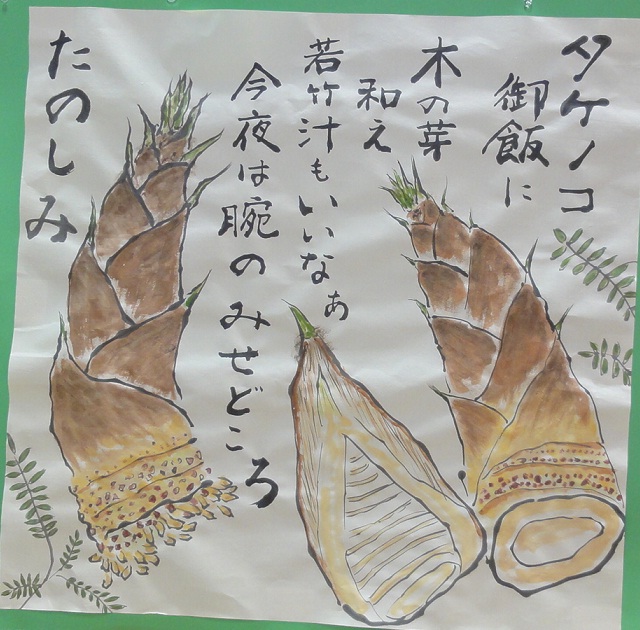 タケノコ
御飯に
木の芽
和え
若竹汁もいいなぁ
今夜は腕のみせどころ
たのしみ